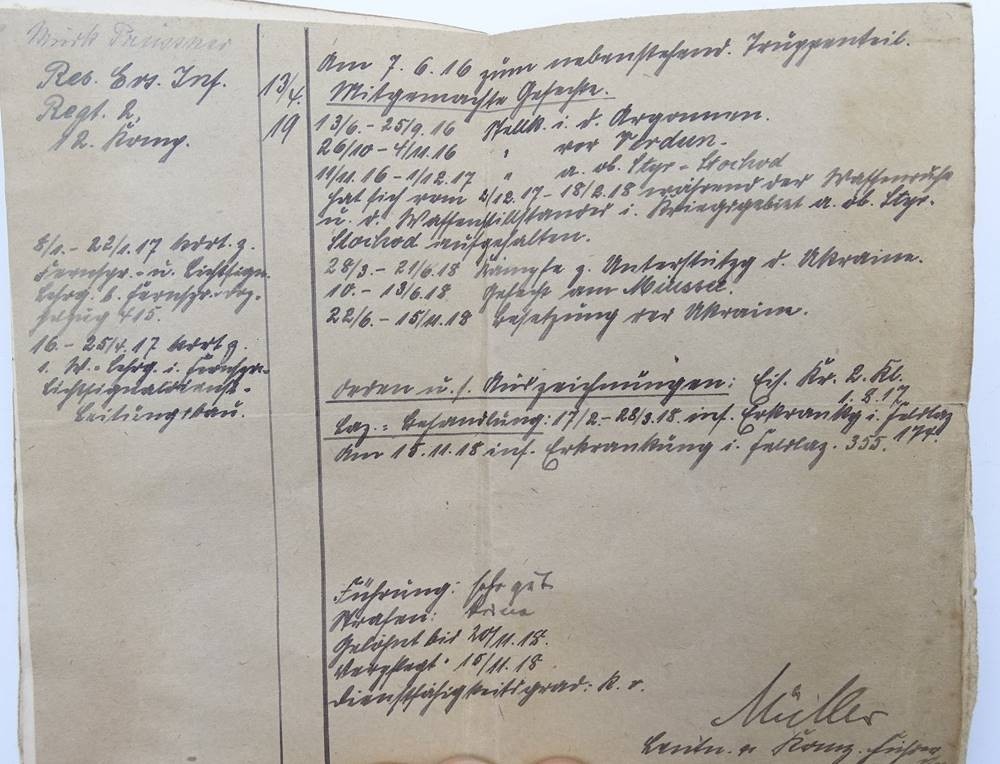 Res. Ers. Inf.
Regt. 2,
12. Komp.
13/4.
19
8/1. - 22/1.17 kdrt. z.
Fernspr.- u. Lichtsign.
Lehrg. b. Fernspr.
415.
16. - 25/4.17 kdrt. z.
1. W.-Lehrg. i. Fernspr.-
Lichtsignaldienst-
Leitungsbau.
Am 7.6.16 zum nebenstehend. Truppenteil.
Mitgemachte Gefechte.
13/6. - 25/9.16 Stellk. i. d. Argonnen.
26/10 - 4/11.16 " vor Verdun.
11/11.16 - 1/12.17 " a. ob. Styr - Stochod
hat sich vom 2/12.17 - 18/2.18 während der Waffenruhe
u. d. Waffenstillstandes i. Kriegsgebiet a. ob. Styr-
Stochod aufgehalten.
28/3. - 21/6.18 Kämpfe z. Unterstützg d. Ukraine.
10. - 13/6.18 Gefecht am
22/6. - 15/11.18 Besetzung der Ukraine.
Orden u. s. Auszeichnungen: Eis. Kr. 2. Kl.
1.8.17
Laz.-Behandlung: 17/2 - 28/3.18 inf. Erkrankg i. Feldlaz
174.
Am 15.11.18 inf. Erkrankung i. Feldlaz. 355.
Führung: sehr gut
Strafen: keine
Gelöhnt bis 20/11.18.
Verpflegt " 15/11.18.
Dienstfähigkeitsgrad: k. v.
Müller
Leutn. u. Komp. Führer